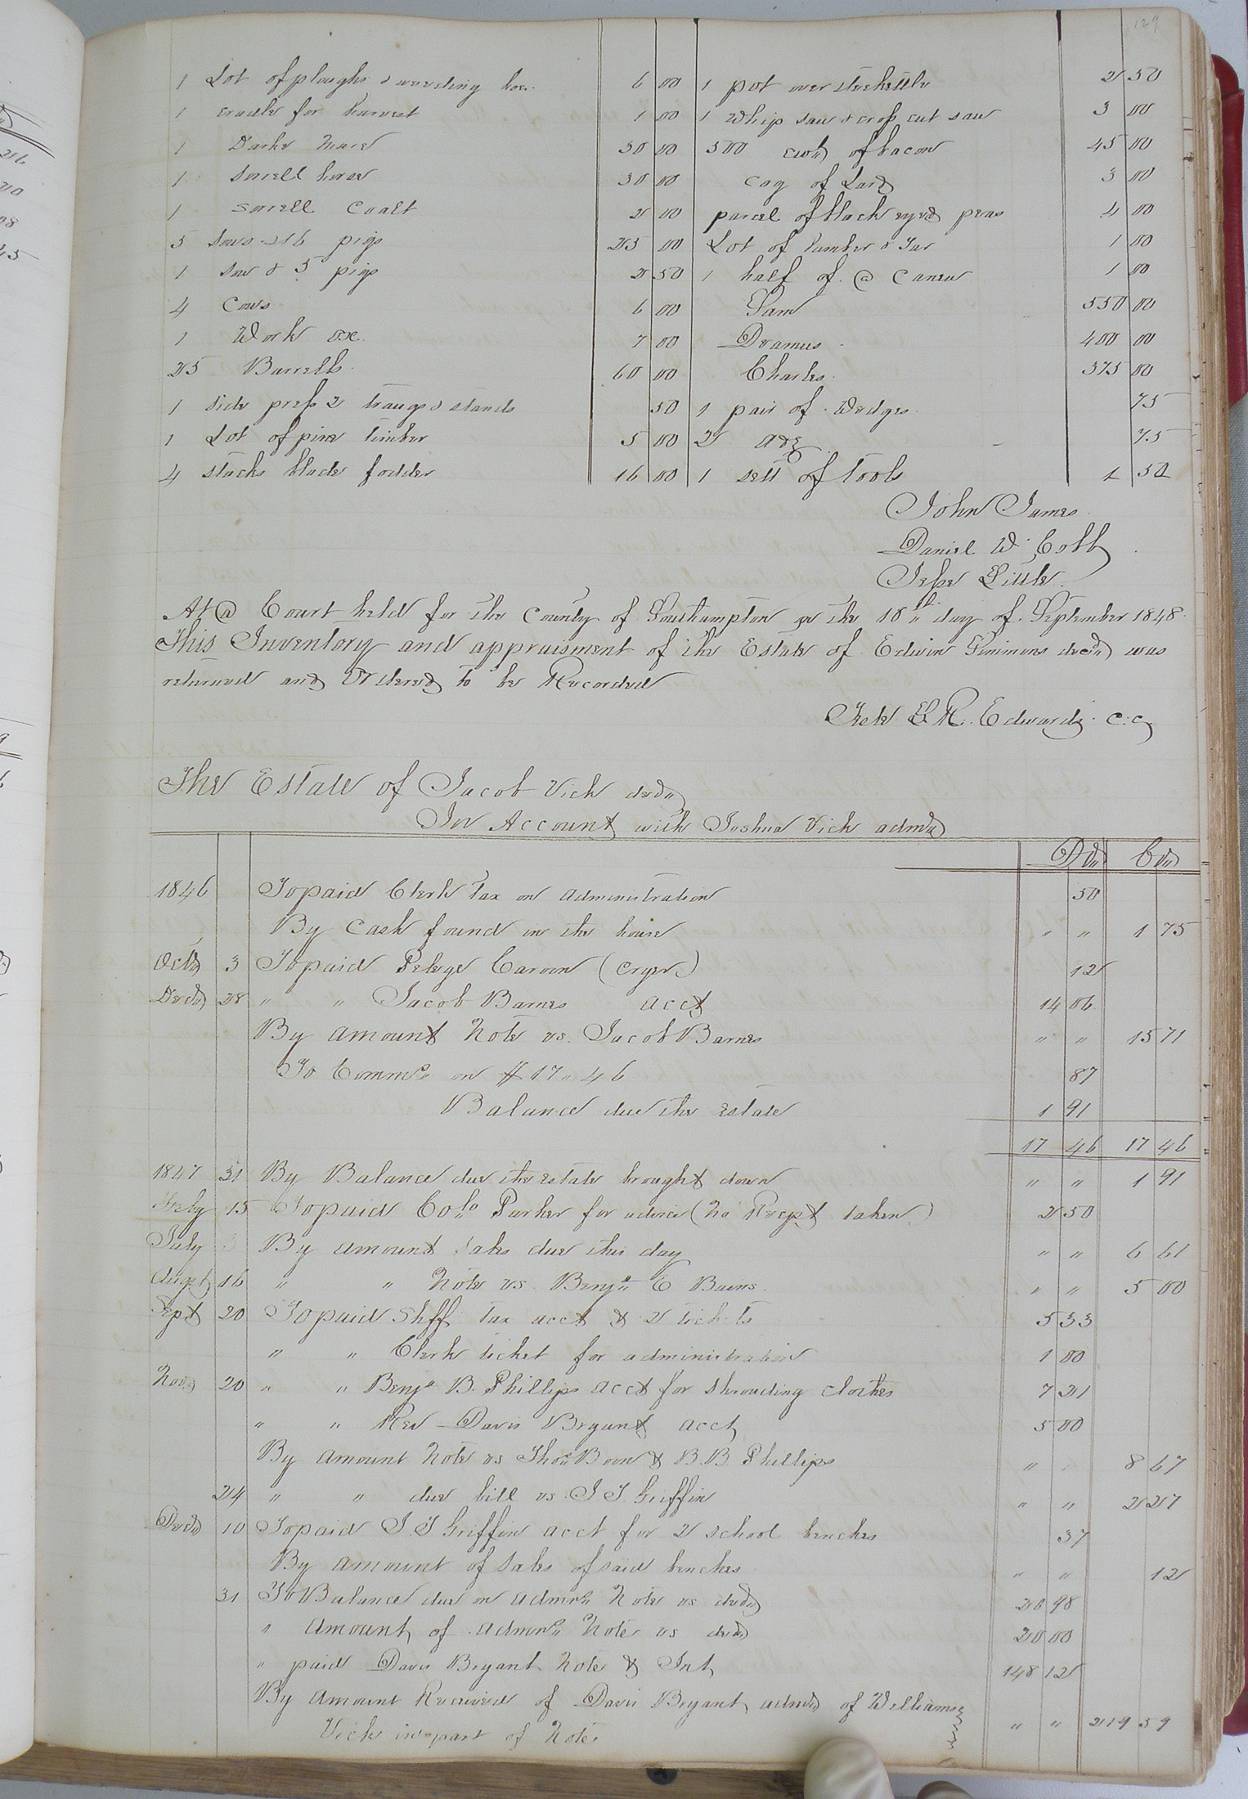 129
1 Lot of ploughs & weeding hoes 6 00
1 cradle for harvest 1 00
1 Dark Mare 30 00
1 Sorrell horse 30 00
1 Sorrell Coalt 2 00
5 Sows 16 pigs 25 00
1 Sow & 5 pigs 2 50
4 Cows 6 00
1 Work ox 7 00
25 Barrells 60 00
1 Side press 2 & stands 50
1 Lot of pine timber 5 00
4 stacks blade fodder 16 00
1 pot over 2 50
1 Whip saw & cross cut saw 3 00
500 of bacon 45 00
Cag of Lard 3 00
parcel of black eyed peas 4 00
Lot of lumber & Tar 1 00
1 half of @ Canew 1 00
Sam 550 00
Dramus 400 00
Charles 575 00
1 pair of Wedges 75
2 axz 75
1 sett of Tools 1 50
John James
Daniel W. Cobb
Jesse Little
At @ Court held for the County of Southampton on the 18th day of September 1848
This Inventory and appraisment of the Estate of Edwin Simmons decd was
returned and Ordered to be Recorded
Teste L R. Edwards C.C
The Estate of Jacob Vick decd
In Account with Joshua Vick admr
Dr Cr
1846 To paid Clerk Tax on administration 50
By Cash found in the house " " 1 75
Octr 3 To paid Pelege Caroon (cryer) 12
Decr 28 " " Jacob Barnes acct 14 06
By amount Note vs. Jacob Barnes " " 15 71
To Comms on $17.46 87
Balance due the estate 1 91
17 46 17 46
1847 31 By Balance due the estate brought down " " 1 91
Feby 15 To paid Colo Parker for advice (No Recept taken) 2 50
July 3 By amount sales due this day " " 6 61
Augst 16 " " Note vs Benja C Barns " " 5 00
Sept 20 To paid Shff Tax acct & 2 tickets 5 33
" " Clerk ticket for administration 1 00
Novr 20 " " Benja B. Phillips acct for shrouding clothes 7 21
" " Rev Davis Bryant acct 5 00
By amount Note vs Thos Boon & B. B Phillips " 8 67
24 " " due bill vs J J Griffin " " 2 27
Decr 10 To paid J J Griffin acct for 2 school benches 37
By amount of sales of said benches " " 12
31 To Balance due on admrs Note vs decd 28 98
" Amount of admrs Note vs decd 20 00
" paid Davis Bryant Note & Int 148 12
By amount Received of Davis Bryant admr of Williams
Vick in part of Note " " 219 59